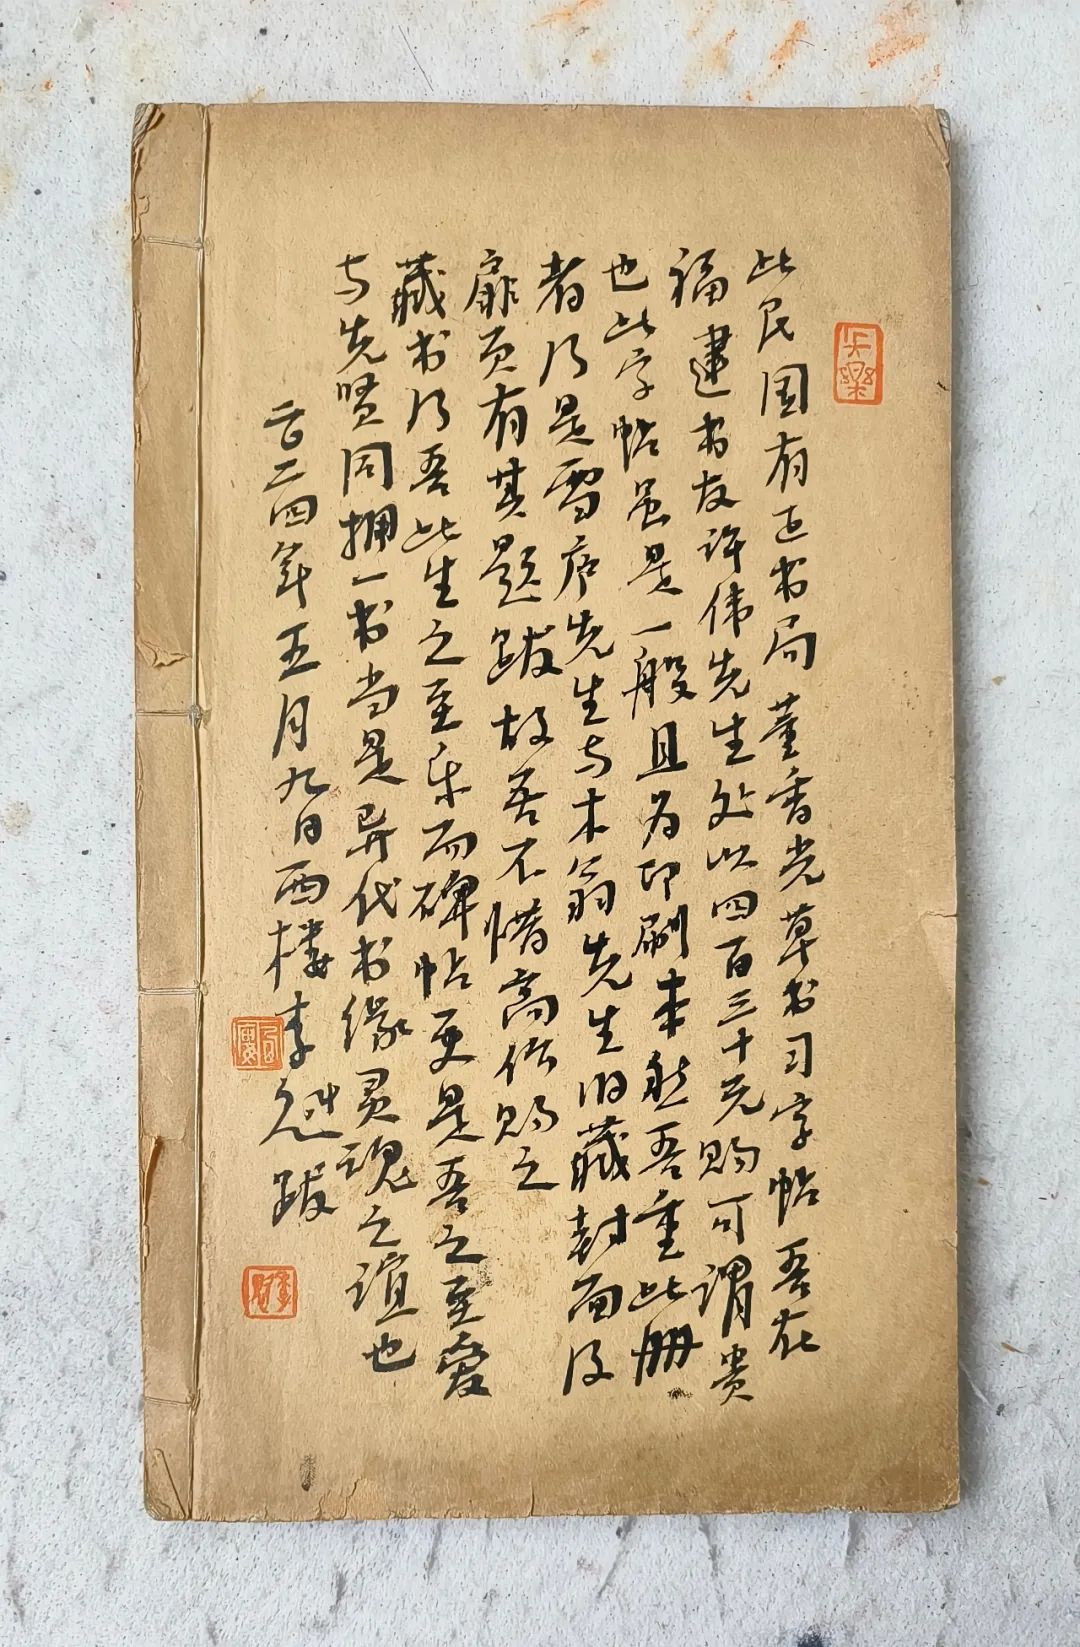 此民国有正书局董香光草书习字帖吾在
福建书友许伟先生处以四百三十元购可谓贵
也此字帖虽是一般且为印刷本然吾重此册
者乃是雪庐先生与木翁先生旧藏封面及
扉页有其题跋故吾不惜高价购之
藏书乃吾此生之至乐而碑帖更是吾之至爱
与先贤同拥一书当是异代书缘灵魂之谊也
二〇二四年五月九日西楼李勉跋